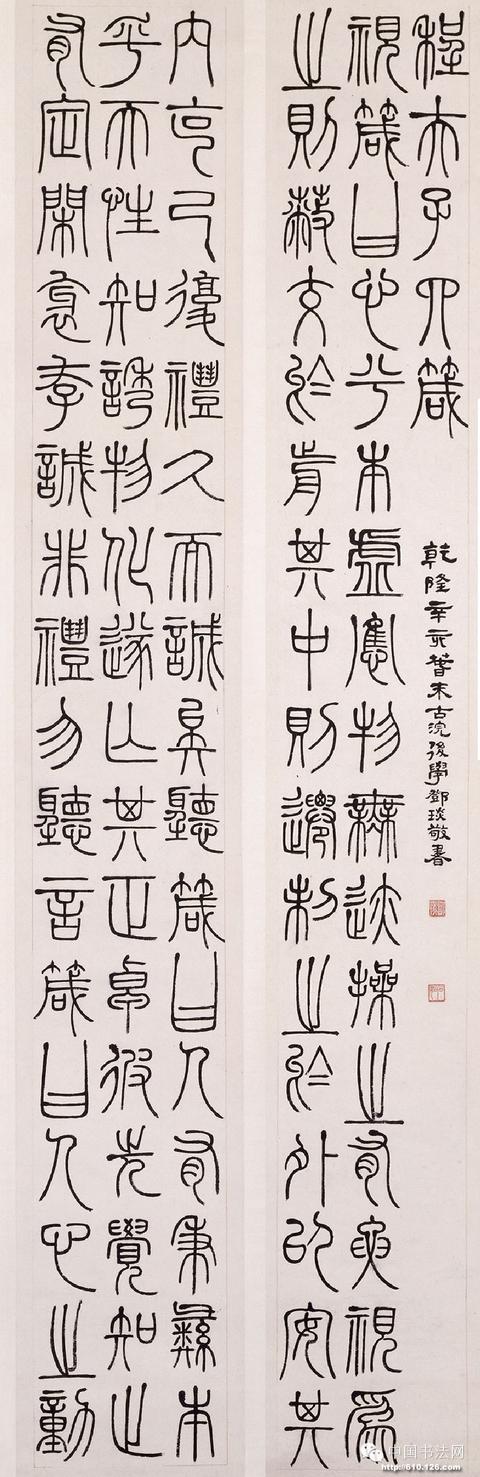 程夫子四箴
乾隆辛亥古浣後學鄧琰敬書
視箴曰心兮本虛應物無迹操之有要視爲
之則蔽交於前其中則遷制之於外以安其
內克己復禮久而誠矣聽箴曰人有秉彝本
乎天性知誘物化遂亡其正卓彼先覺知止
有定閑邪存誠非禮勿聽言箴曰人心之動
中国书法网
http://610.126.com